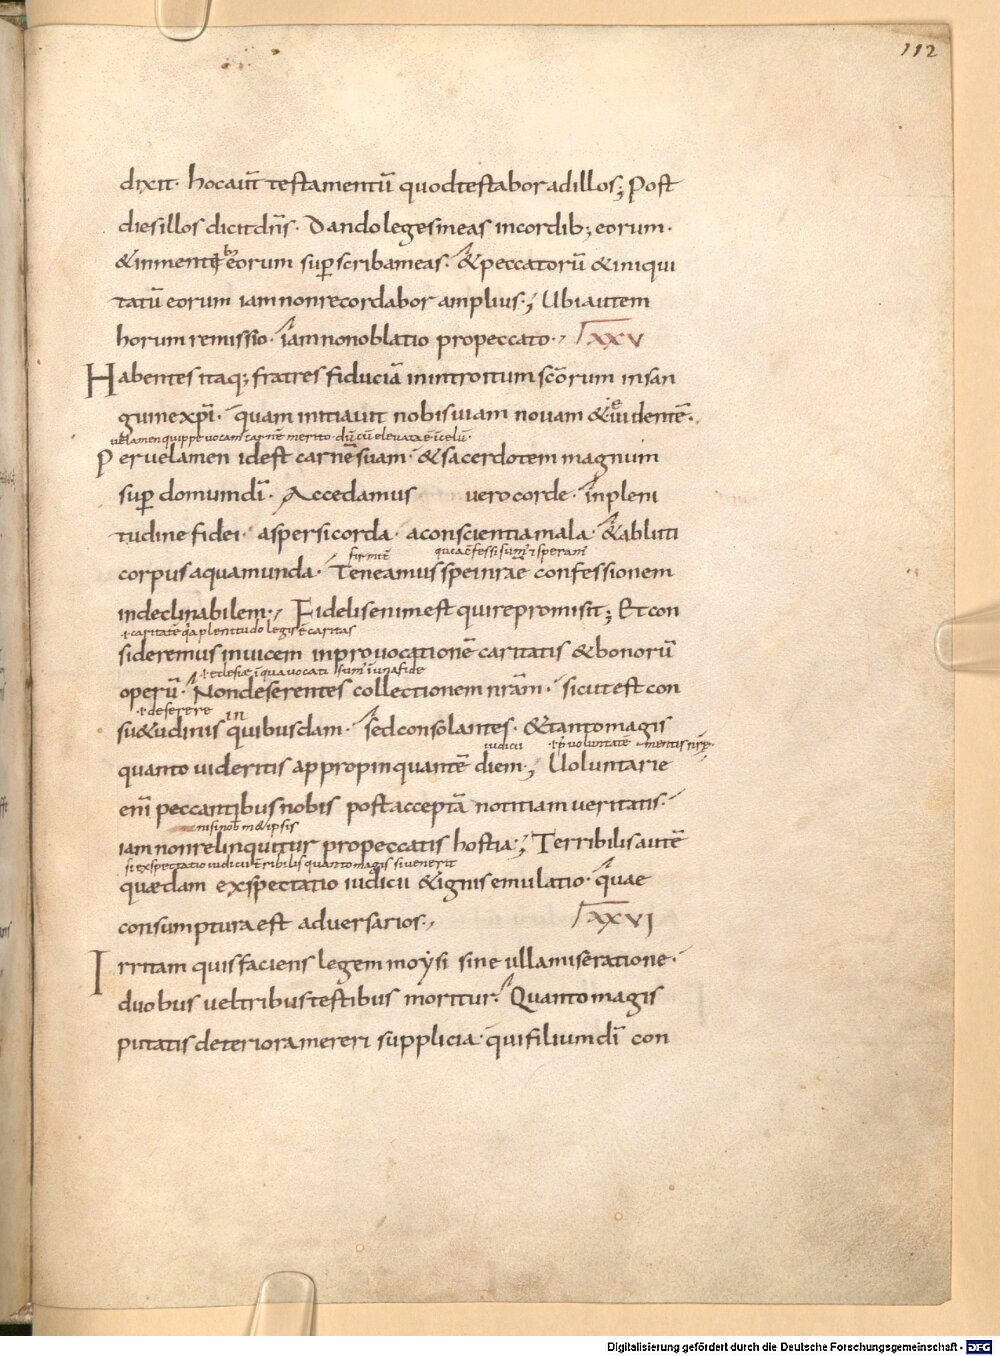 112
dixit· hoc aut̄ testamentū quod testabor ad illos; Post
dies illos dicit dn̄s· Dando leges meas in cordib; eorum·
& in mentęb; eorum sup̄scribam eas· & peccatorū & iniqui
tatū eorum iam non recordabor amplius·; Ubi autem
horum remissio· iam non oblatio pro peccato·, XXV
Habentes itaq; fratres fiduciā in introitum sc̄orum in san
guine xp̄i· quam initiavit nobis viam novam & vidente·
velamen quippe vocam̄ carnē
Per velamen id est carnē suam· & sacerdotem magnum
sup̄ domum dī· Accedamus vero corde· in pleni
tudine fidei· aspersi corda· a conscientia mala· & abluti
firmitē quia c̄fessi sum̄ & speram̄
corpus aqua munda· Teneamus spei nr̄ae confessionem
indeclinabilem·, Fidelis enim est qui repromisit; Et con
ł caritatē q̄a plenitudo legis ē caritas
sideremus invicem in provocationē caritatis & bonorū
ł ecclesiae in qua vocati sum̄ in una fide
operū· Non deserentes collectionem nr̄am· sicut est con
ł deserere in
su&udinis quibusdam· sed consolantes· & tanto magis
iudicii
quanto videritis appropinquantē diem·; Uoluntarie
enī peccantibus nobis post acceptā notitiam veritatis·
nisi nob m& ipsis
iam non relinquitur pro peccatis hostia·; Terribilis autē
si exspectatio iudicii t̄ribilis quanto magis si venerit
quaedam exspectatio iudicii & ignis emulatio· quae
consumptura est adversarios·, XXVI
Irritam quis faciens legem moysi sine ulla miseratione·
duobus vel tribus testibus moritur· Quanto magis
putatis deteriora mereri supplicia· qui filium dī con
Digitalisierung gefördert durch die Deutsche Forschungsgemeinschaft - DFG